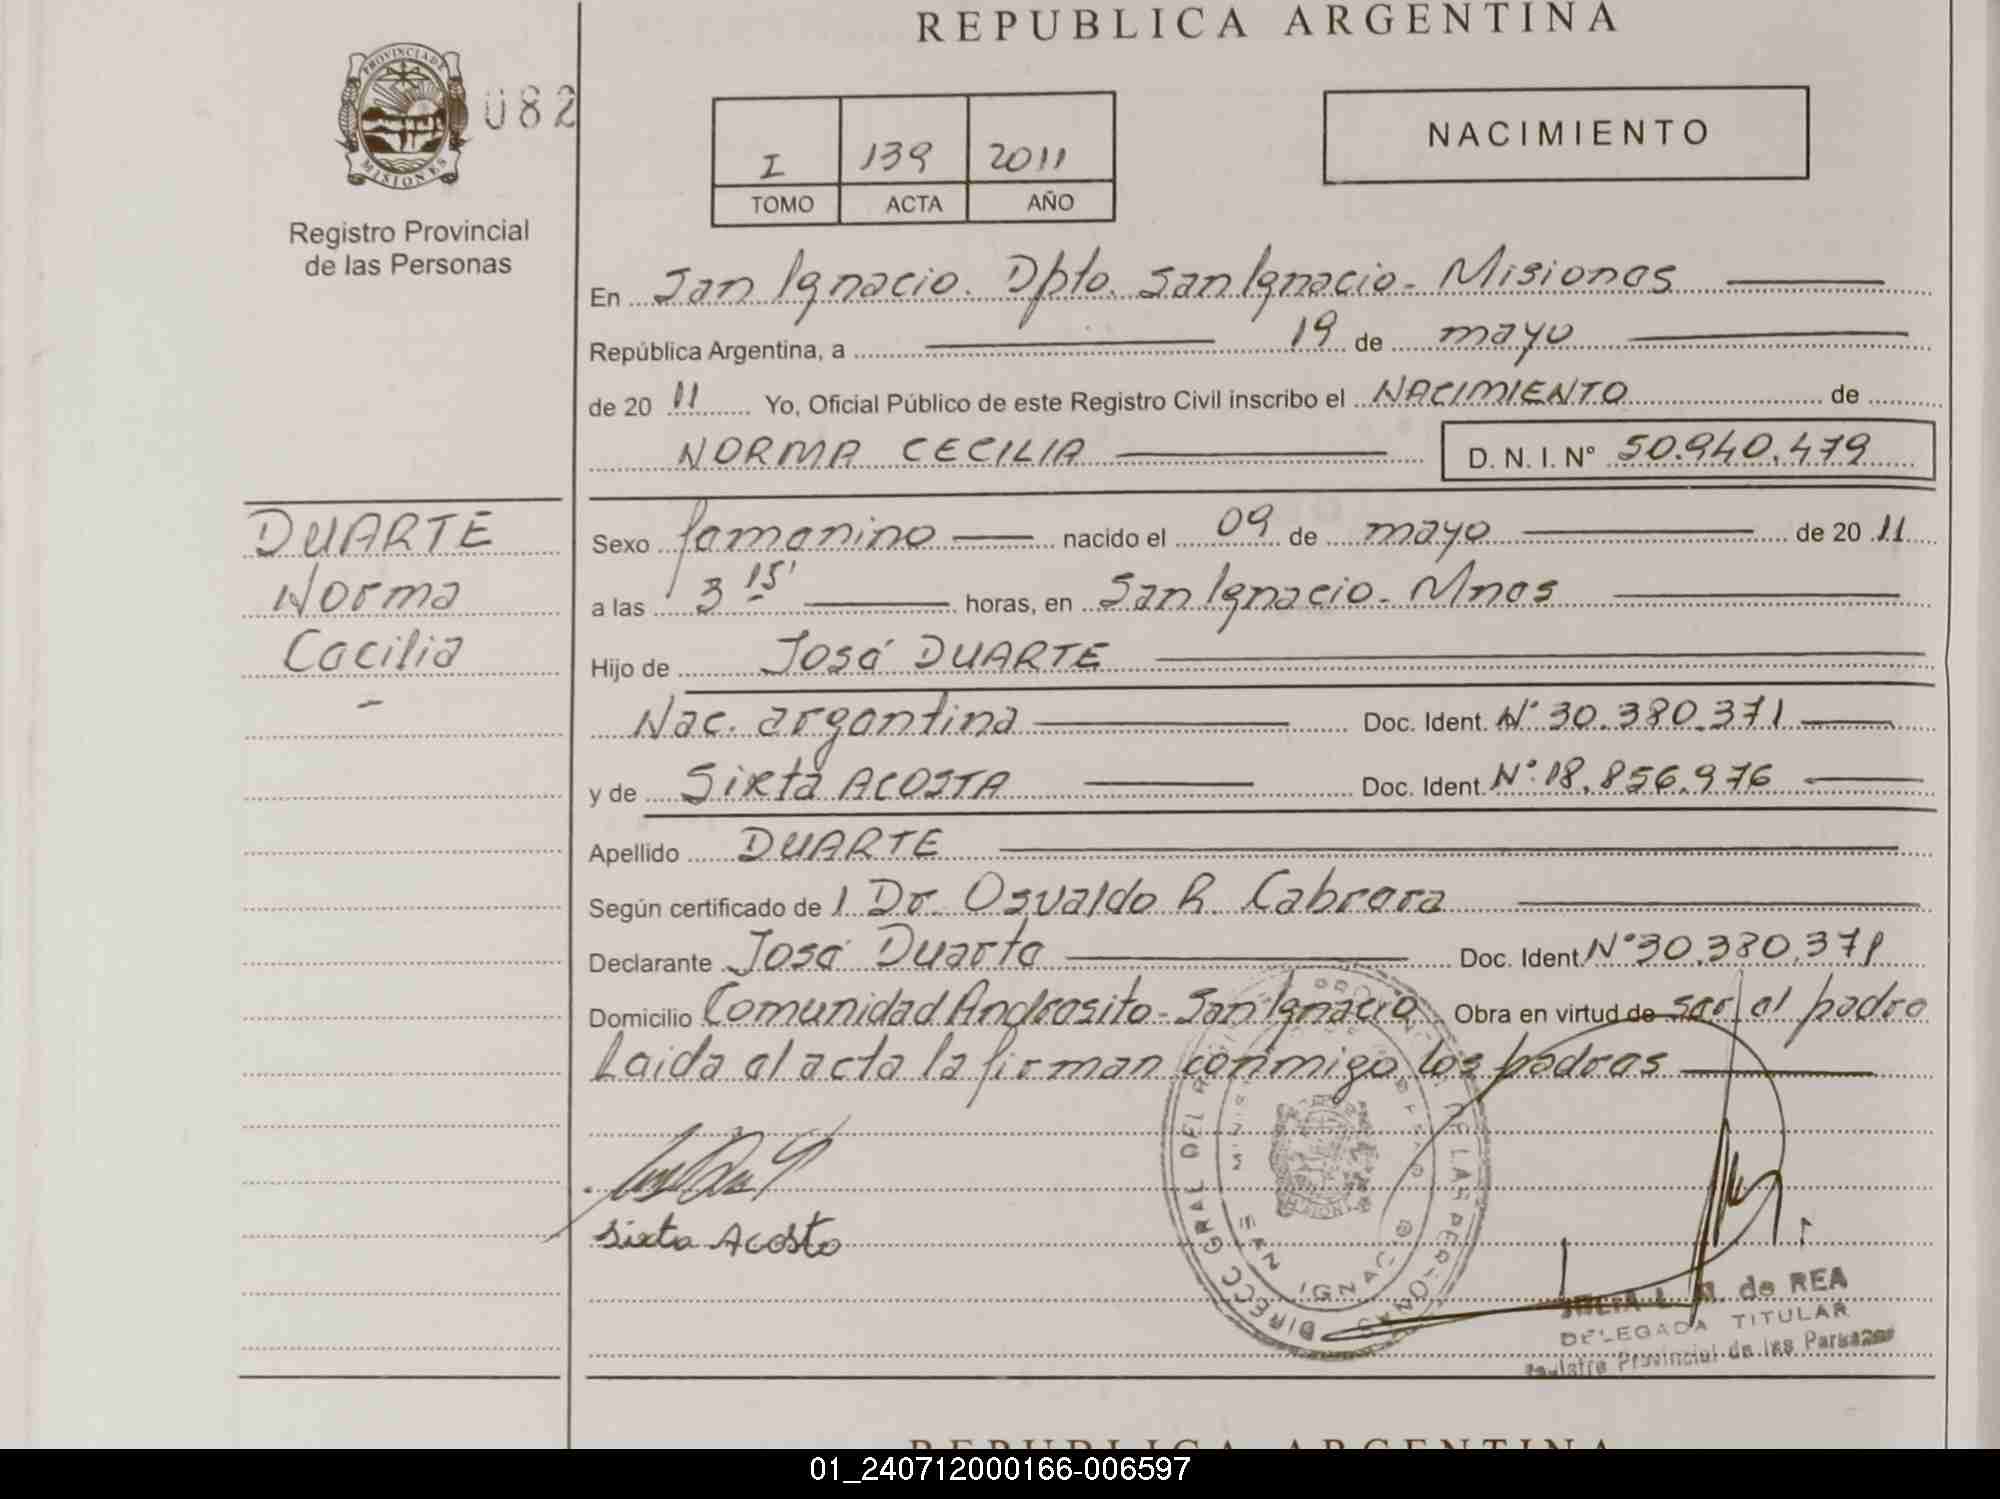 REPUBLICA ARGENTINA
PROVINCIA DE
MISIONES
082
Registro Provincial
de las Personas
I 139 2011
TOMO ACTA AÑO
NACIMIENTO
En San Ignacio. Dpto. San Ignacio - Misiones
República Argentina, a 19 de mayo
de 20 11 Yo, Oficial Público de este Registro Civil inscribo el NACIMIENTO de
NORMA CECILIA D. N. I. N° 50.940.479
DUARTE
Norma
Cecilia
Sexo femenino nacido el 09 de mayo de 20 11
a las 3 15' horas, en San Ignacio - Mnes
Hijo de José DUARTE
Nac. argentina Doc. Ident. N° 30.380.371
y de Sixta ACOSTA Doc. Ident. N° 18.856.976
Apellido DUARTE
Según certificado de l Dr. Osvaldo R. Cabrera
Declarante José Duarte Doc. Ident. N° 30.380.371
Domicilio Comunidad Andresito - San Ignacio Obra en virtud de ser el padre
Leida el acta la firman conmigo los padres
Sixta Acosta
DIRECC GRAL DEL DE LAS PERSONAS
SAN IGNACIO
L. de REA
DELEGADA TITULAR
Registro Provincial de las Personas
REPUBLICA ARGENTINA
01_240712000166-006597